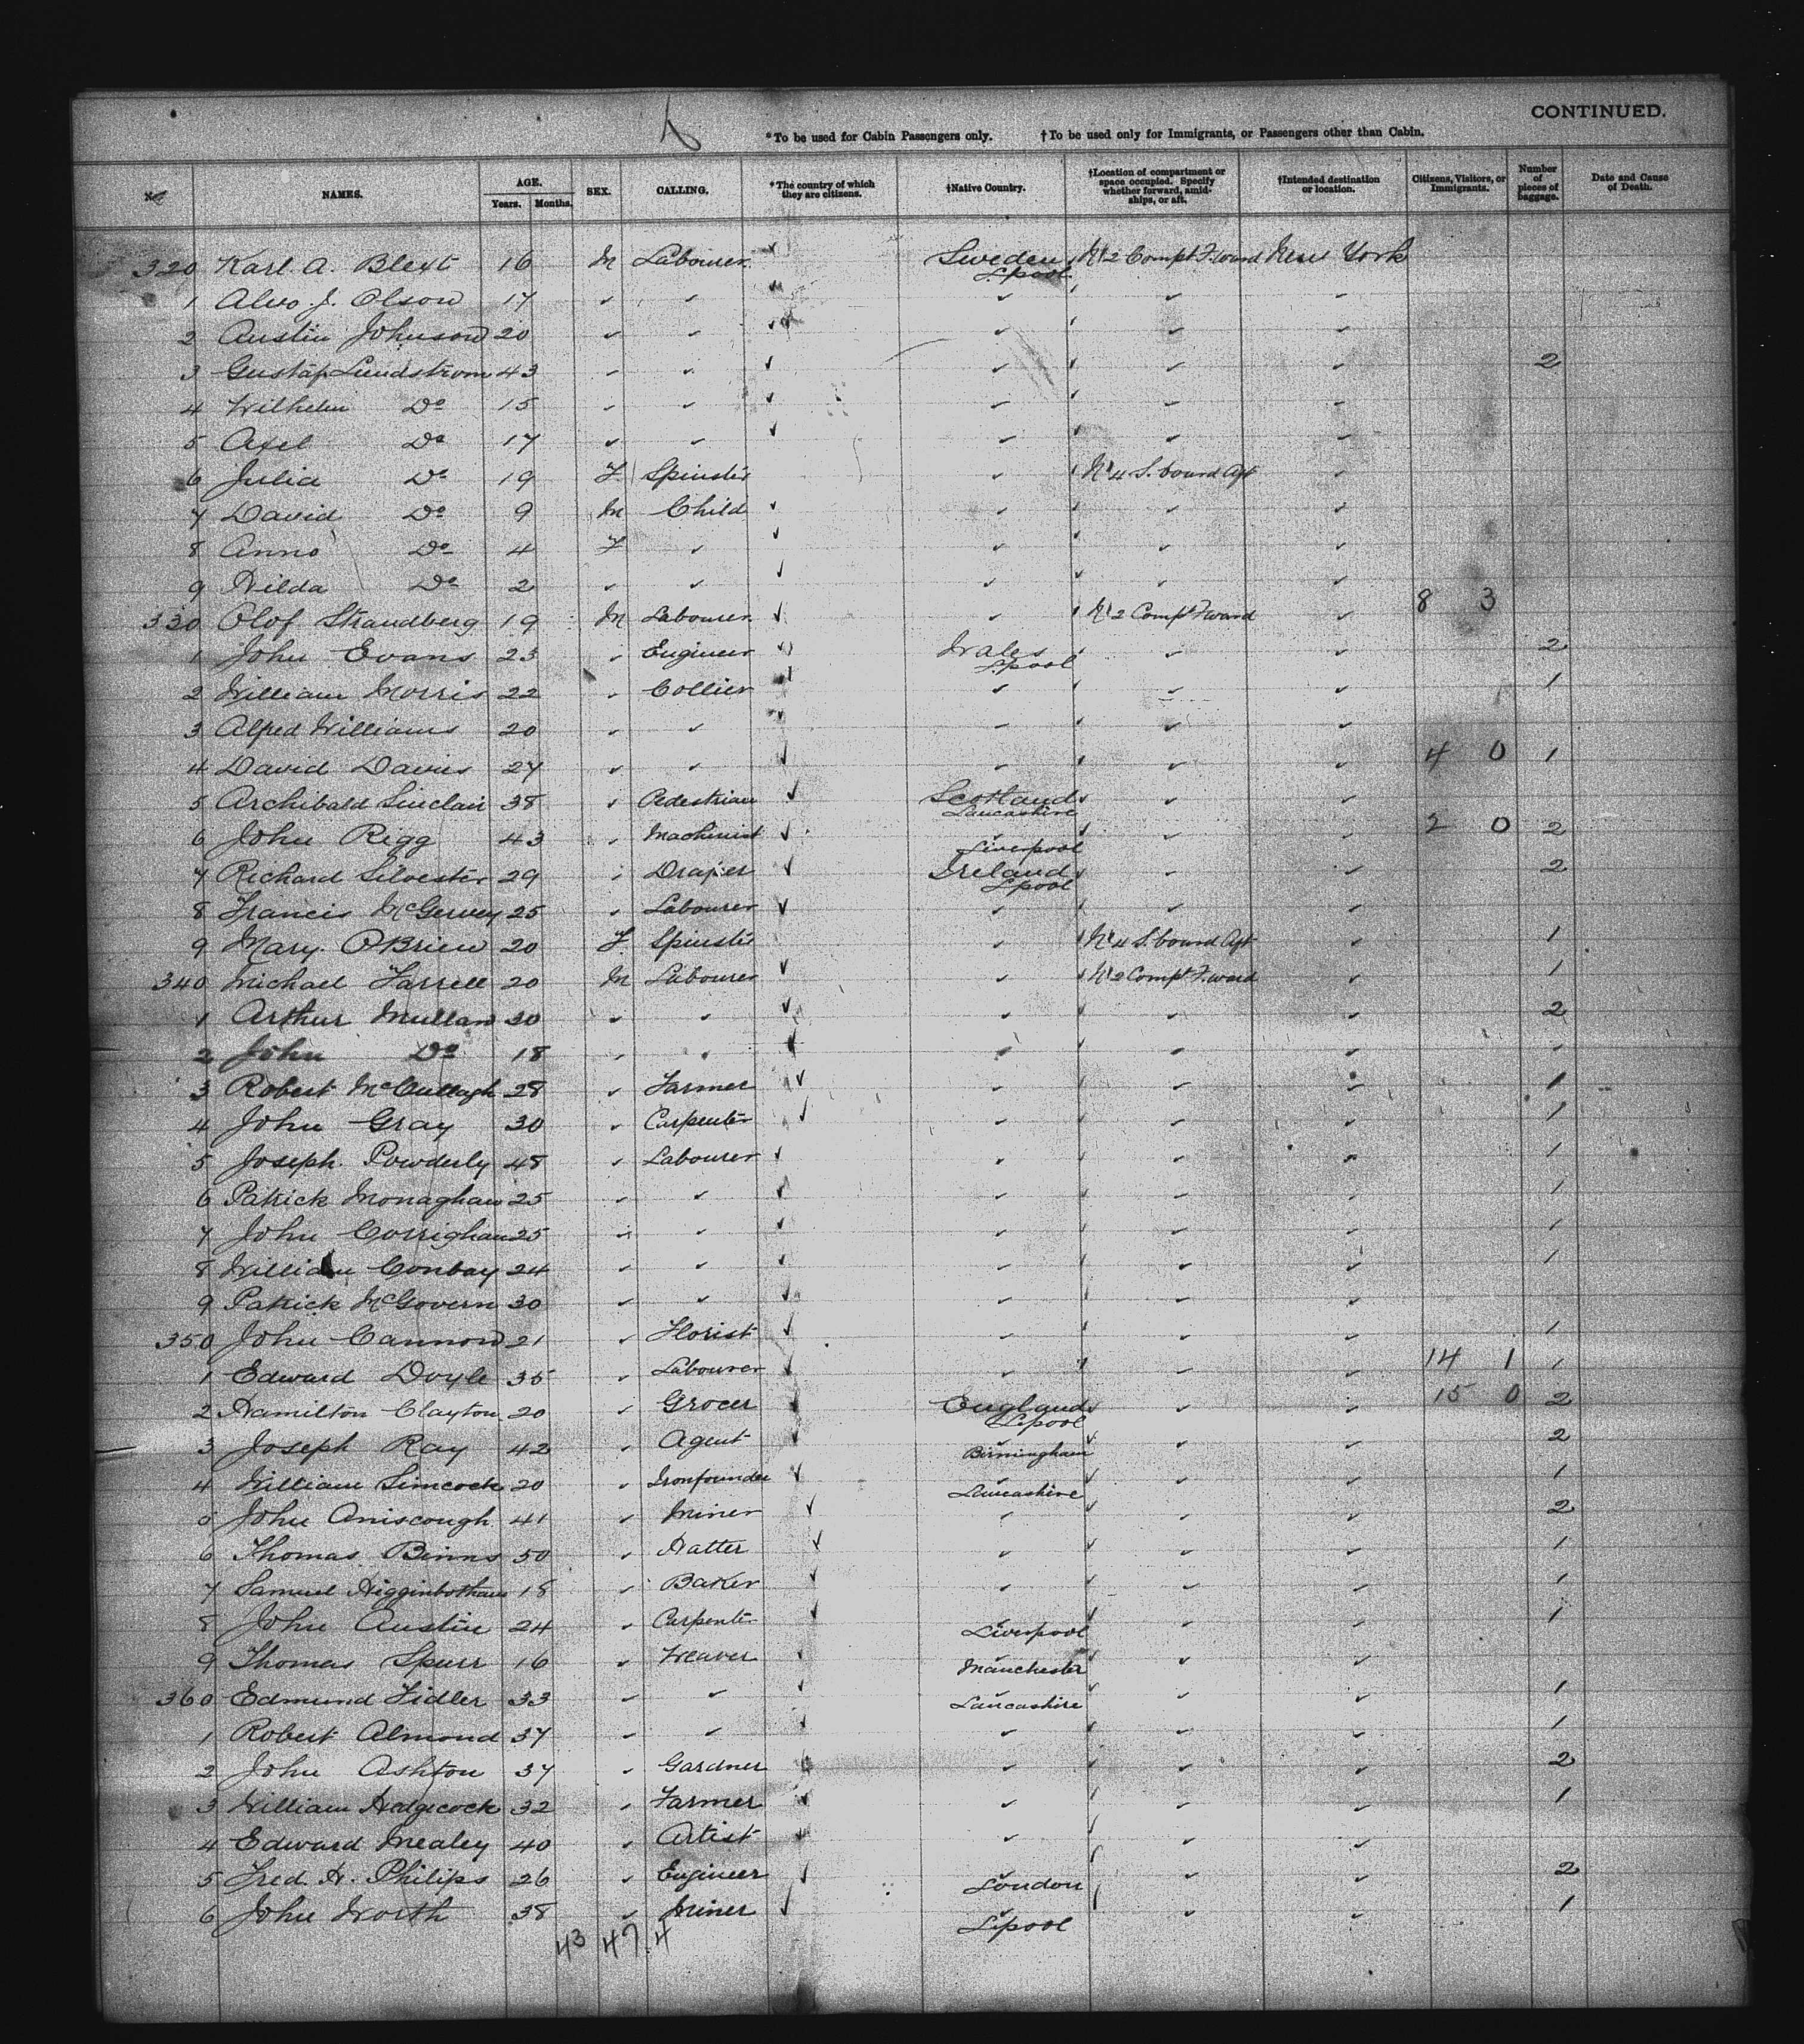 CONTINUED.
*To be used for Cabin Passengers only. †To be used only for Immigrants, or Passengers other than Cabin.
No. NAMES. AGE. Years. Months. SEX. CALLING. *The country of which they are citizens. †Native Country. †Location of compartment or space occupied. Specify whether forward, amidships, or aft. †Intended destination or location. Citizens, Visitors, or Immigrants. Number of pieces of baggage. Date and Cause of Death.
320 Karl A. Blext 16 M Labourer Sweden L.pool No 2 Compt F.ward New York
1 Alvo. J. Olson 17
2 Austin Johnson 20
3 Gustaf Lundstrom 43 2
4 Wilhelm Do 15
5 Axel Do 17
6 Julia Do 19 F Spinster No 4 S. board Aft
7 David Do 9 M Child
8 Anna Do 4 F
9 Hilda Do 2
330 Olof Strandberg 19 M Labourer No 2 Compt F.ward 8 3
1 John Evans 23 Engineer Wales L.pool 2
2 William Morris 22 Collier 1
3 Alfred Williams 20
4 David Davies 27 4 0 1
5 Archibald Sinclair 38 Pedestrian Scotland Lancashire
6 John Rigg 43 Machinist Liverpool 2 0 2
7 Richard Silvester 29 Draper Ireland L.pool 2
8 Francis McGervey 25 Labourer
9 Mary O'Brien 20 F Spinster No 4 S. board Aft 1
340 Michael Farrell 20 M Labourer No 2 Compt F.ward 1
1 Arthur Mullan 30 2
2 John Do 18
3 Robert McCullagh 28 Farmer 1
4 John Gray 30 Carpenter 1
5 Joseph Powderly 48 Labourer 1
6 Patrick Monaghan 25 1
7 John Corrighan 25 1
8 William Conbay 24 1
9 Patrick McGovern 30
350 John Cannon 21 Florist 1
1 Edward Doyle 35 Labourer 14 1 1
2 Hamilton Clayton 20 Grocer England L.pool 15 0 2
3 Joseph Ray 42 Agent Birmingham 2
4 William Simcock 20 Ironfounder Lancashire 1
5 John Aniscough 41 Miner 2
6 Thomas Binns 50 Hatter 1
7 Samuel Higginbotham 18 Baker 1
8 John Austin 24 Carpenter Liverpool 1
9 Thomas Spurr 16 Weaver Manchester
360 Edmund Fidler 33 Lancashire 1
1 Robert Almond 37 1
2 John Ashton 37 Gardner 2
3 William Hedgecock 32 Farmer 1
4 Edward Mealey 40 Artist
5 Fred. H. Philips 26 Engineer London 2
6 John Worth 38 Miner L.pool 1
43 47.4